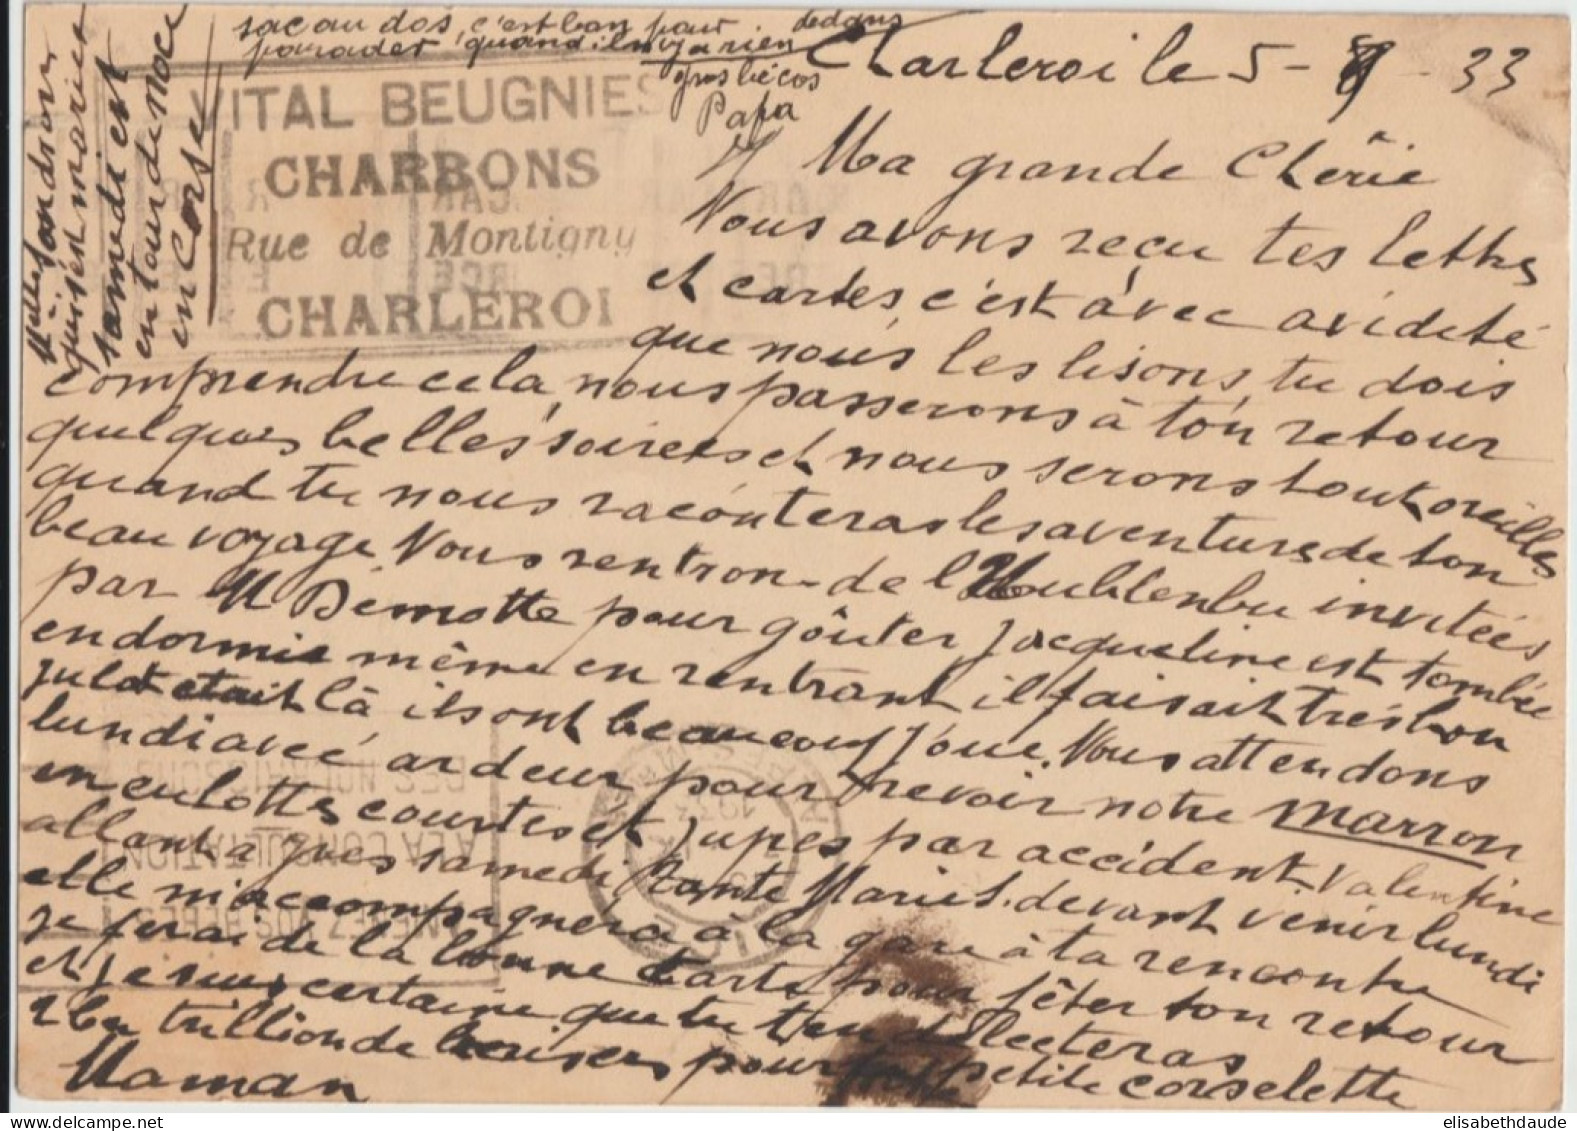 sac au dos, c'est bon pour dedans
parader, quand il n'y a rien
gros bécos
Papa
Charleroi le 5-8-33
VITAL BEUGNIES
CHARBONS
Rue de Montigny
CHARLEROI
qui s'est mariée
samedi est
en tour de noce
en Corse
Ma grande Chérie
Nous avons reçu tes lettres
et cartes, c'est avec avidité
que nous les lisons, tu dois
comprendre cela, nous passerons à ton retour
quelques belles soirées et nous serons tout oreilles
quand tu nous raconteras les aventures de ton
beau voyage. Nous rentrons de invitées
par M Demotte pour goûter Jacqueline est tombée
endormie même en rentrant il faisait très bon
était là ils ont beaucoup joué. Nous attendons
lundi avec ardeur pour revoir notre Marron
en culottes courtes et jupes par accident. Valentine
allant à samedi Tante Marie devant venir lundi
elle m'accompagnera à la gare à ta rencontre
je ferai de la bonne tarte pour fêter ton retour
et je suis certaine que tu t'en délecteras
trillion de baisers pour petite corselette
Maman
elisabethdaude